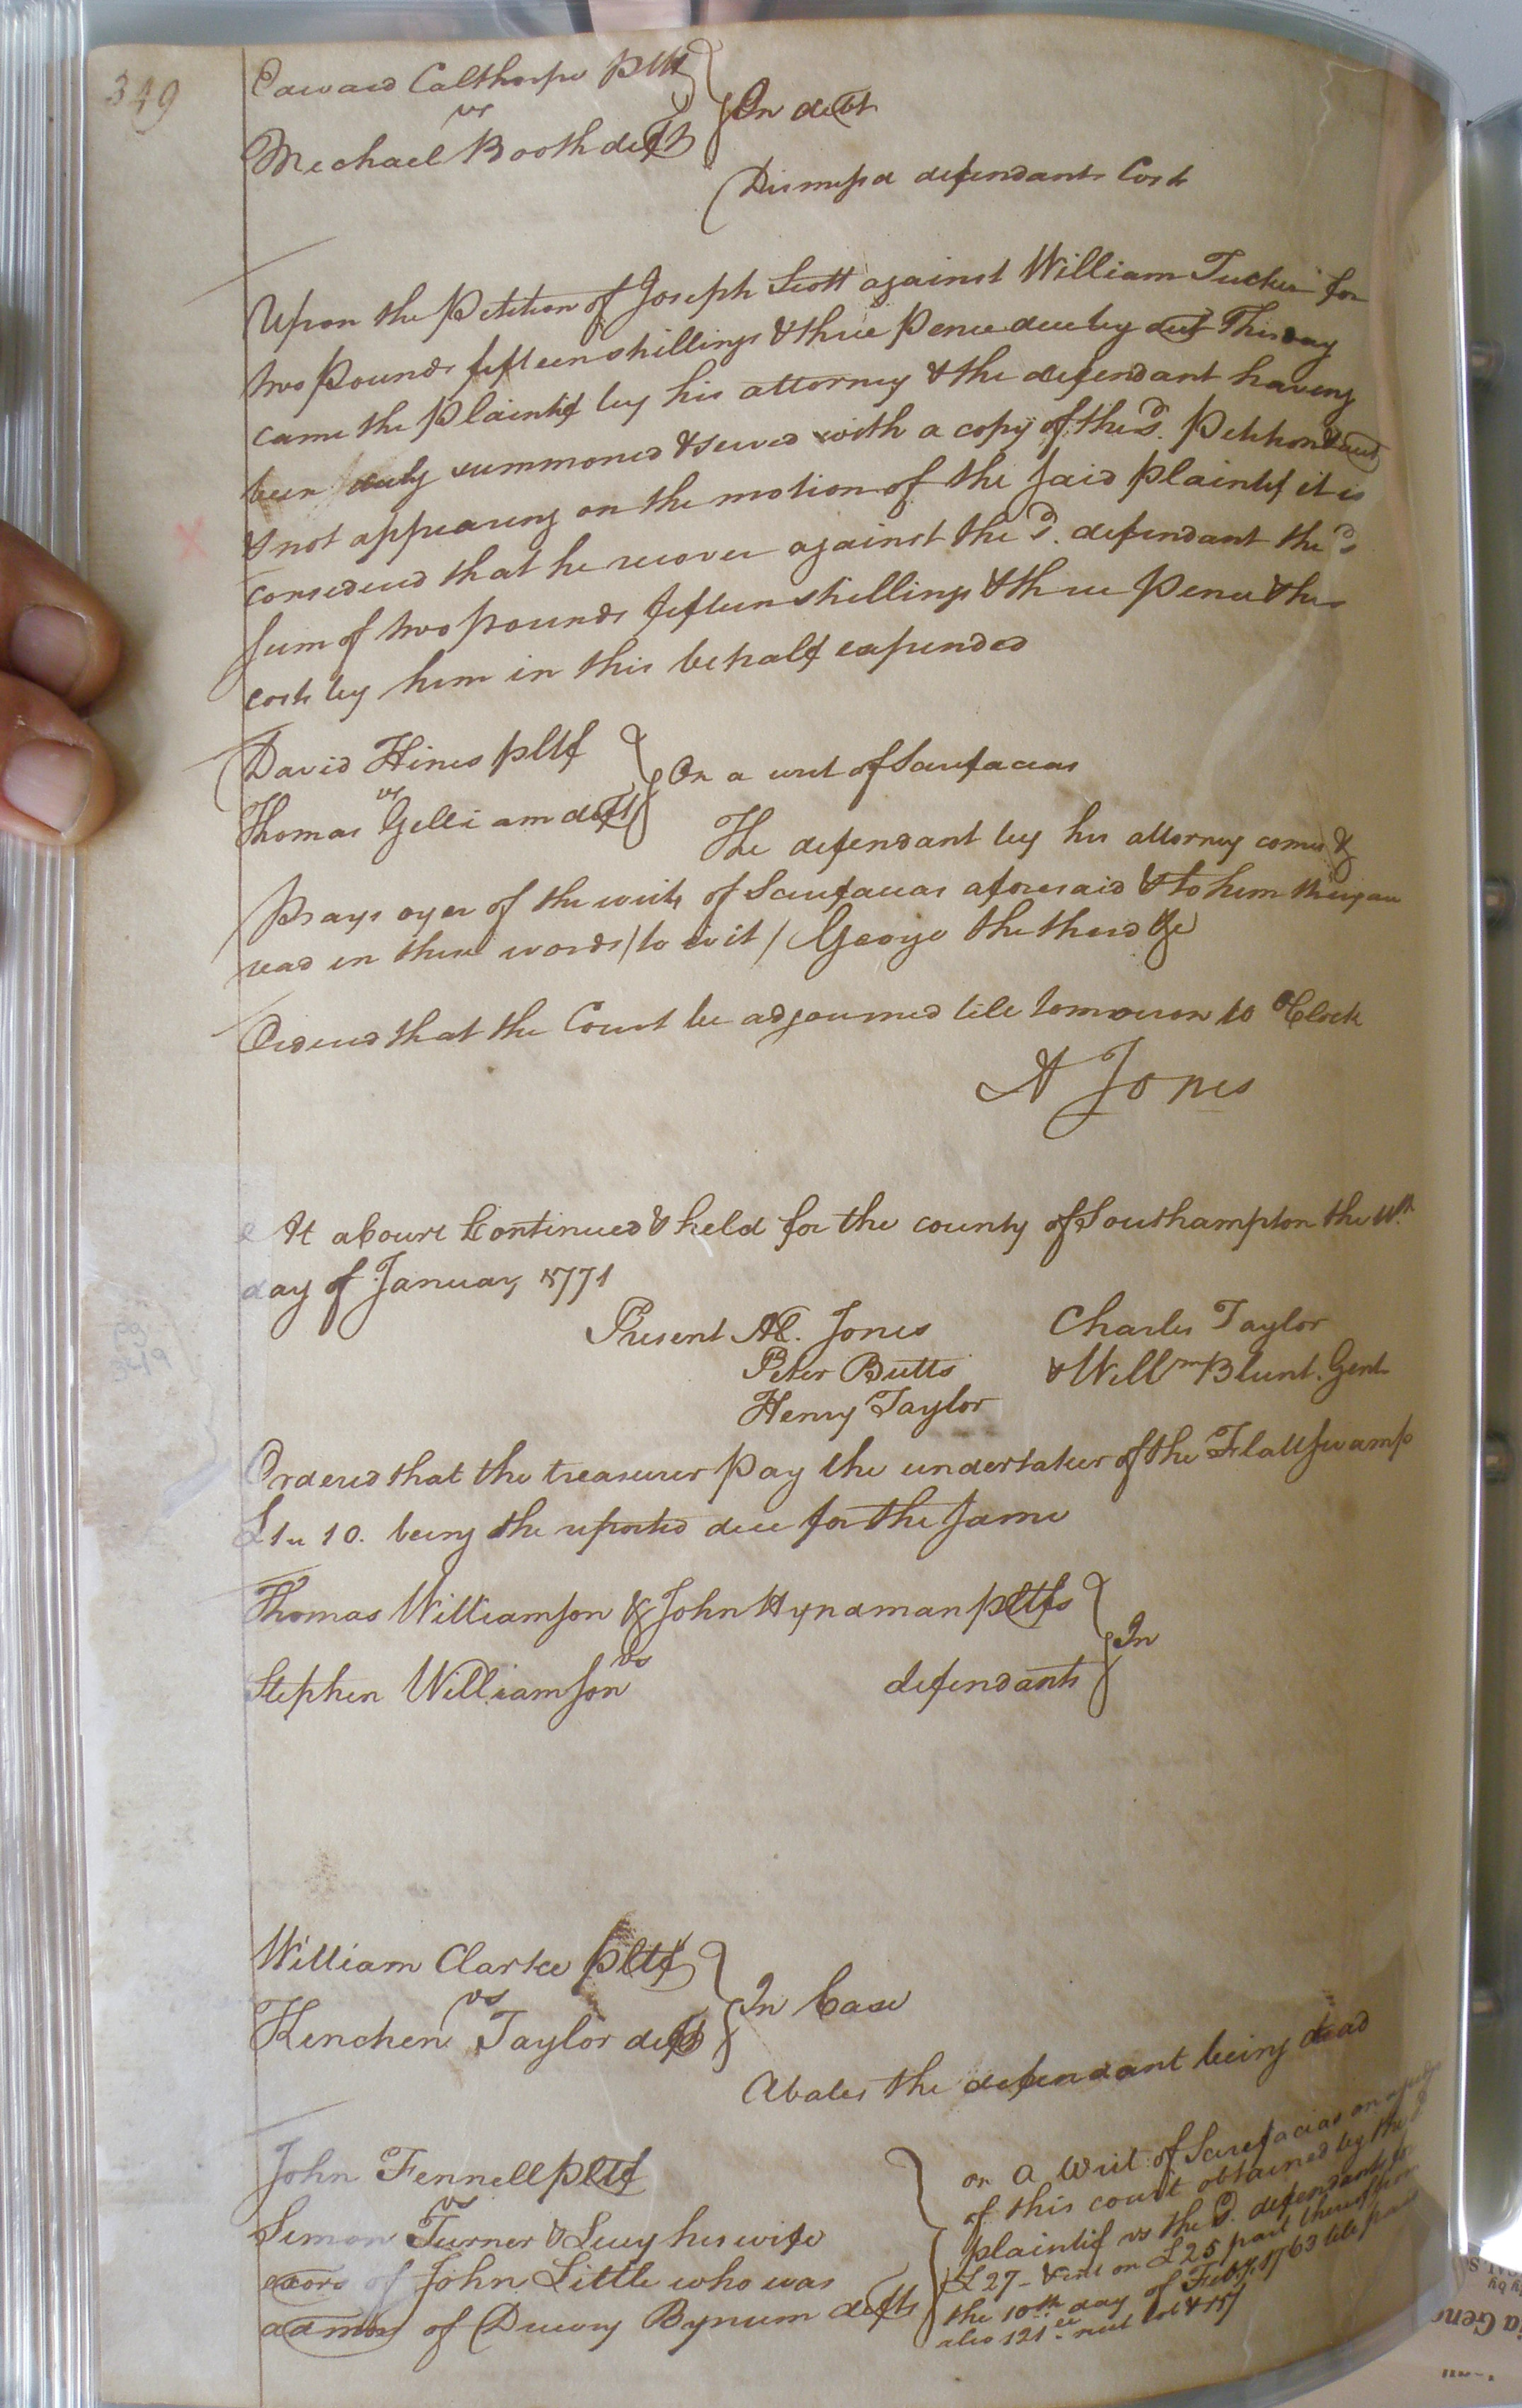 349
Edward Calthorpe pltf
vs
Michael Booth deft
In debt
Dismissd defendants Costs
Upon the Petition of Joseph Scott against William Tucker for
two Pounds fifteen shillings & three Pence due by acct This day
came the Plaintif by his attorney & the defendant having
been duly summoned & served with a copy of the sd. Petition & acct
& not appearing on the motion of the said plaintif it is
considered that he recover against the sd. defendant the sd
sum of two pounds fifteen shillings & three Pence & his
costs by him in this behalf expended
David Hines pltf
vs
Thomas Gilliam deft
On a writ of Scirefacias
The defendant by his attorney comes &
Prays oyer of the writ of Scirefacias aforesaid & to him they are
read in these words /to wit/ George the third &c
Ordered that the Court be adjourned till tomorrow 10 oClock
A Jones
At a Court Continued & held for the county of Southampton the 11th
day of January 1771
Present Al. Jones
Charles Taylor
Peter Butts
& Willm Blunt. Gent
Henry Taylor
Ordered that the treasurer Pay the undertaker of the Flatt swamp
£1 " 10. being the reported due for the same
Thomas Williamson & John Hyndman pltfs
vs
Stephen Williamson defendants
In
pg
349
William Clarke pltf
vs
Kinchen Taylor deft
In Case
Abates the defendant being dead
John Fennell pltf
vs
Simon Turner & Lucy his wife
exors of John Little who was
admor of Drewry Bynum defts
on a Writ of Scirefacias on a judgt
of this court obtained by the sd
plaintif vs the sd. defendants for
£27 - & int on £25 part thereof from
the 10th day of Feby. 1763 till paid
also 121 nett tob & 15/